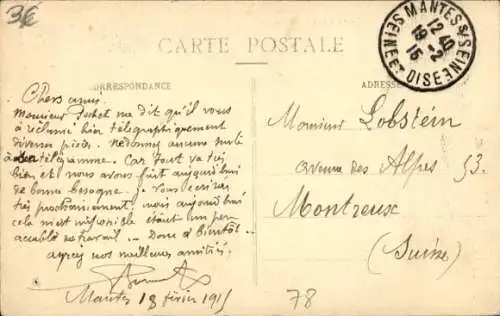 3€
MANTES S/SEINE
12 40
19 -2
15
SEINE ET OISE
CARTE POSTALE
CORRESPONDANCE
ADRESSE
Chers amis.
Monsieur Puhot me dit qu'il vous
a réclamé hier télégraphiquement
diverses pièces. Ne donnez aucune suite
à son télégramme. Car tout va très
bien et nous avons fait aujourd'hui
de bonne besogne. Je vous écrirai
très prochainement, mais aujourd'hui
cela m'est impossible étant un peu
accablé de travail... Donc à bientôt...
ayez nos meilleures amitiés.
Mantes 18 février 1915
Monsieur Lobstein
avenue des Alpes 53.
Montreux
(Suisse)
78